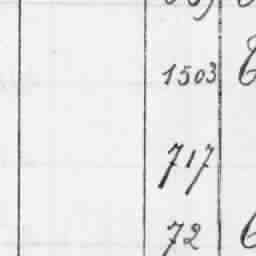 1503
717
72